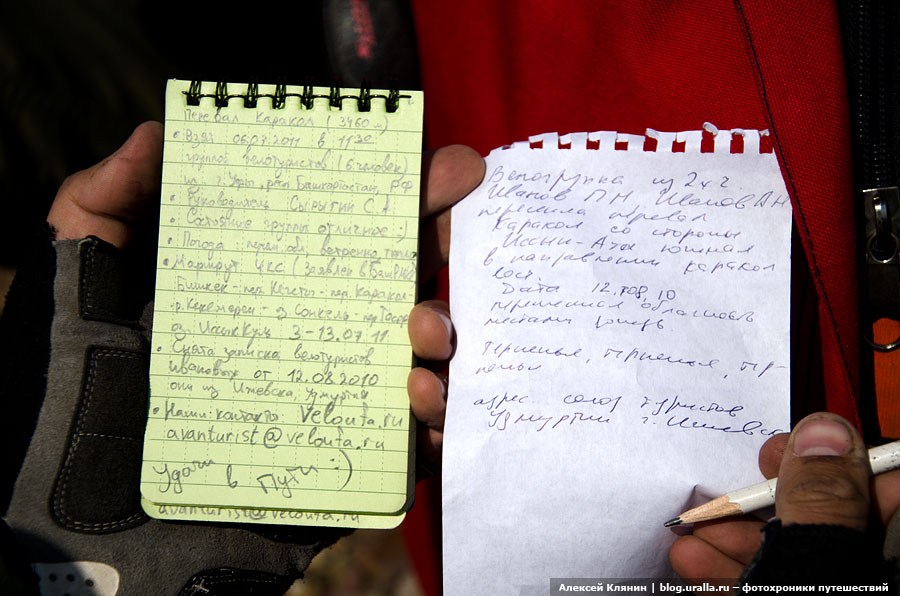 Перевал Каракол (3460 м)
• Взят 06.07.2011 в 11 30
группой велотуристов (6 человек)
из г. Уфы, респ Башкортостан, РФ
• Руководитель Сыругин С.А.
• Состояние группы отличное :)
• Погода: перем. обл, ветренно, тепло
• Маршрут 4КС (Заявлен в
Бишкек - пер. Кегеты - пер. Каракол -
р. Кекемерен - о. Сонкель - пер Тосор
оз. Иссык Куль 3-13.07.11
• Снята записка велотуристов
Ивановых от 12.08.2010
они из Ижевска, Удмуртия
• Наши контакты: Velouta.ru
avanturist@velouta.ru
Удачи в пути :)
avanturist@velouta.ru
Велогрупка из 2х ч
Иванов П Н Иванов А Н
перешла перевал
Каракол со стороны
Иссык-Аты южная
в направлении каракол
вост.
Дата 12.08.10
переменная облачность
местами дождь
Терпенья, терпенья, тер-
пенья
адрес. союз туристов
Удмуртии г. Ижевск
Алексей Клянин | blog.uralla.ru – фотохроники путешествий